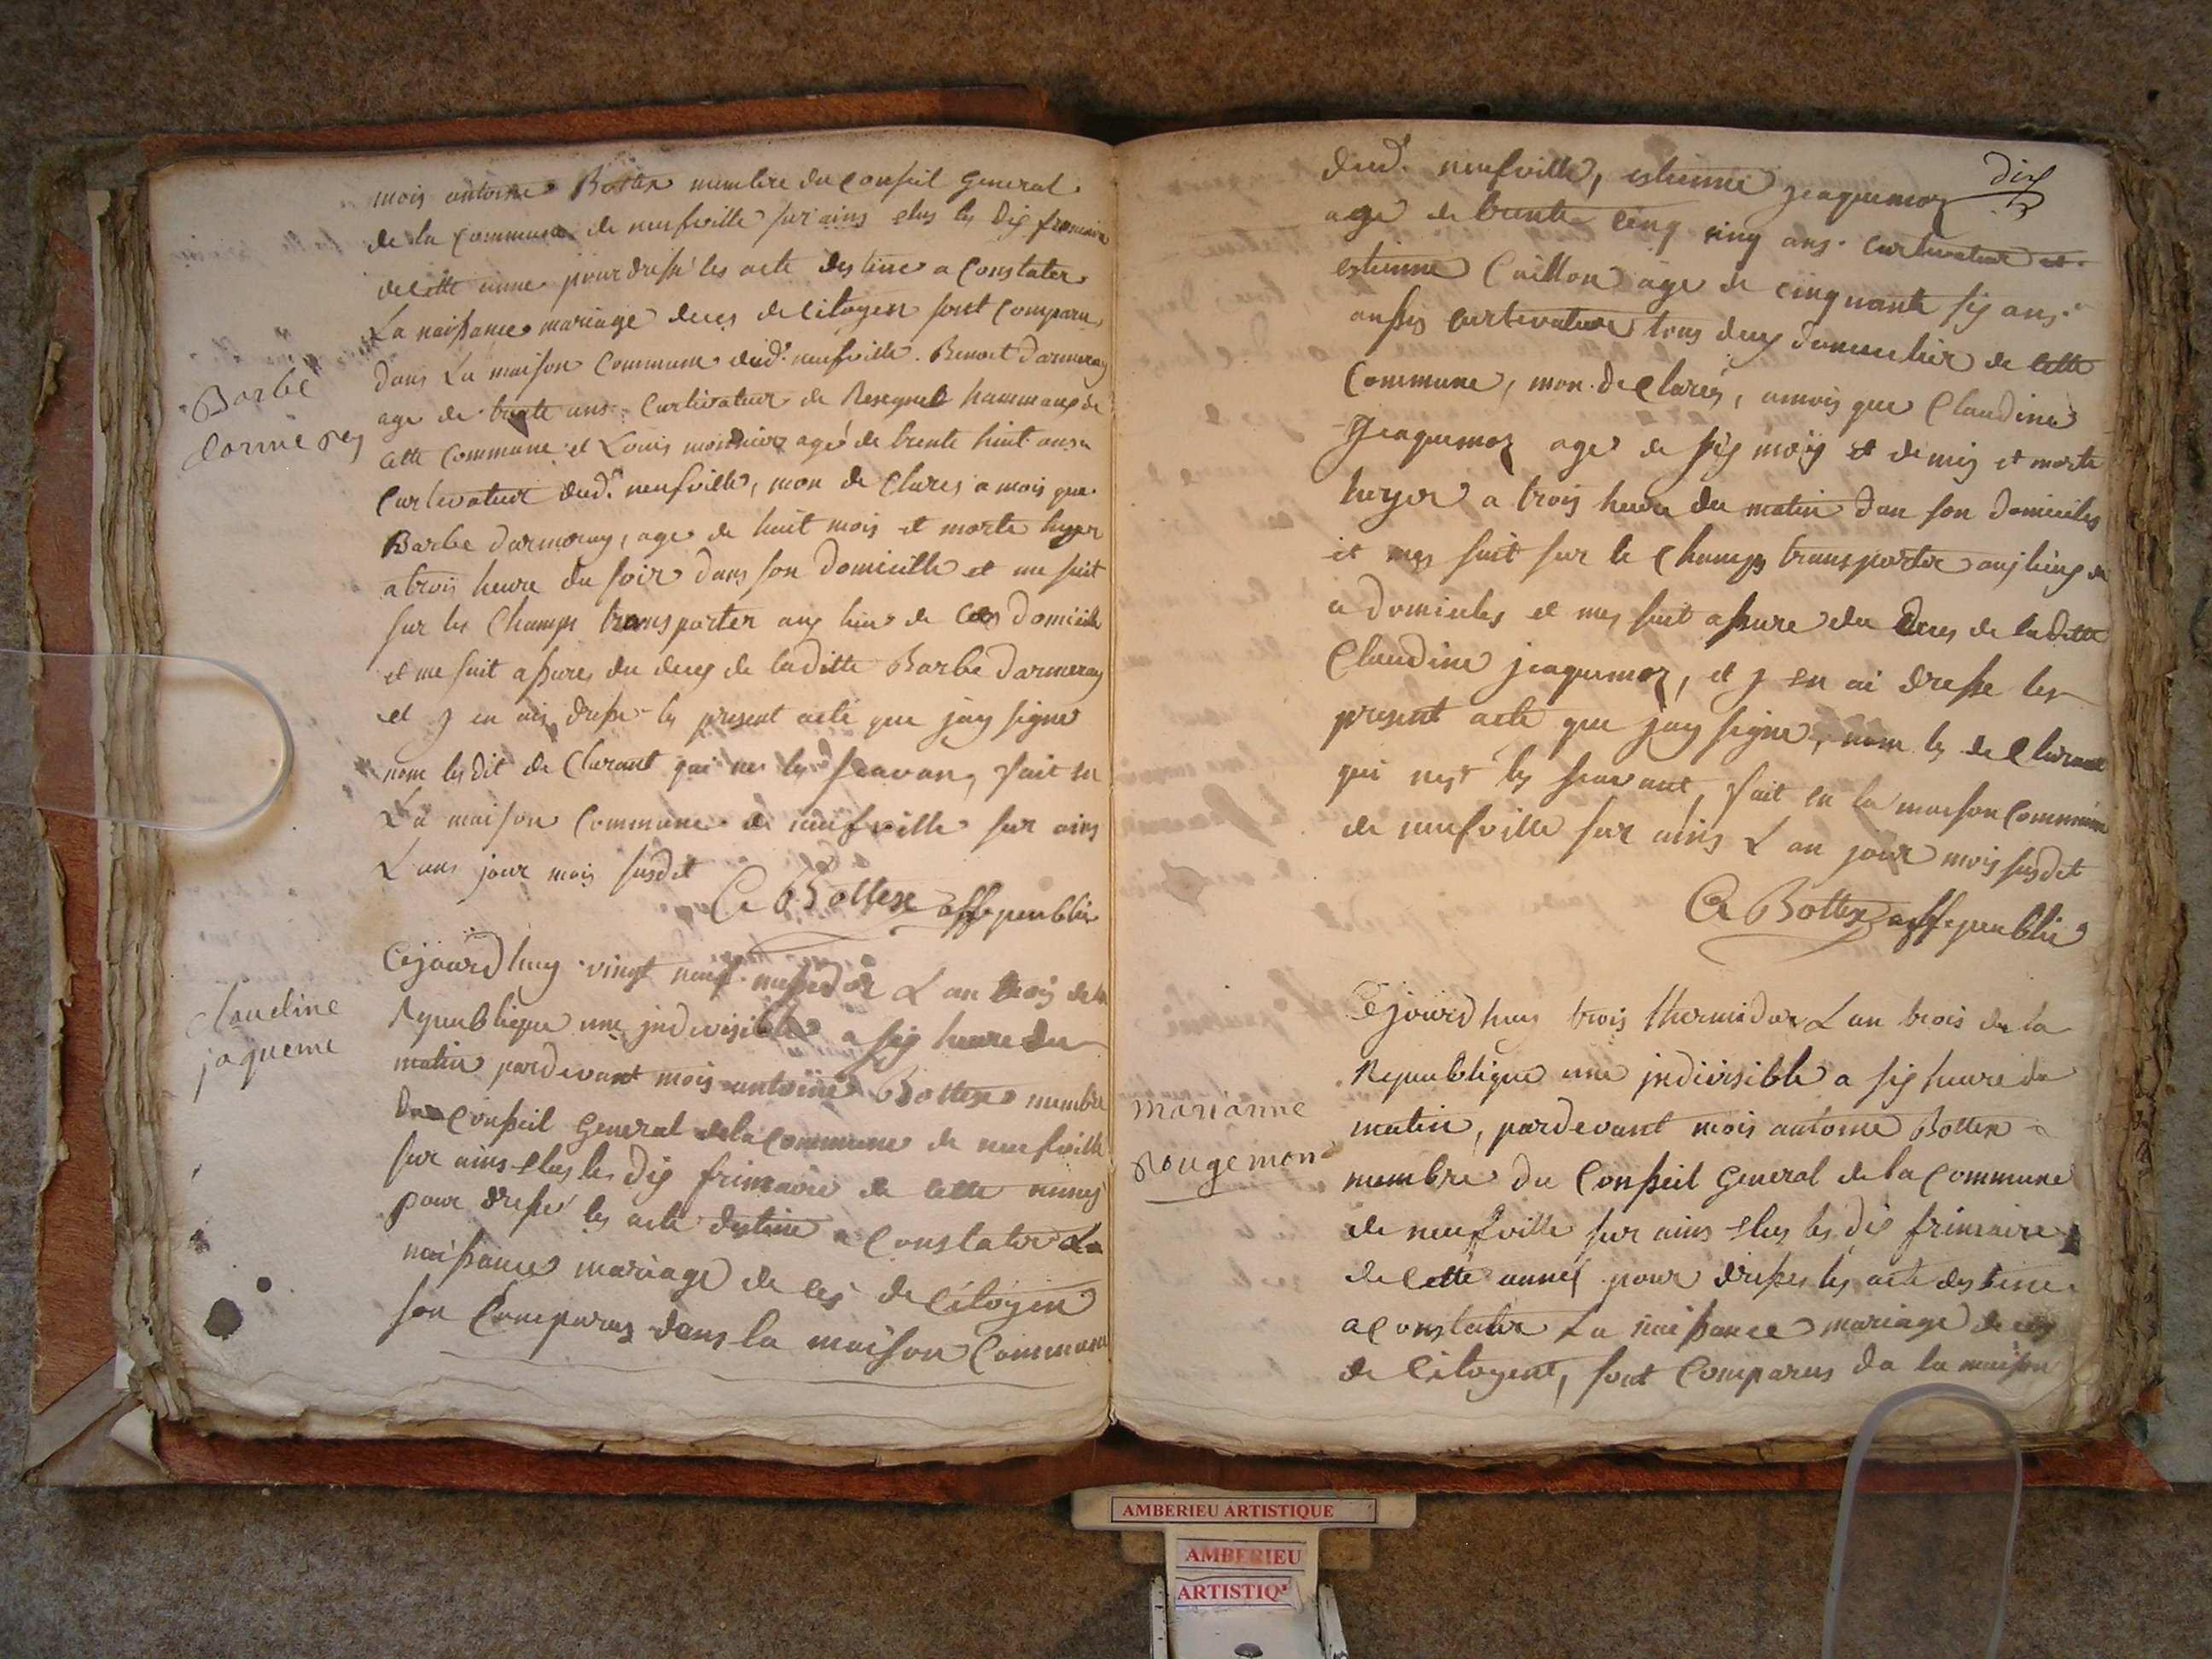 mois antoine Bottex membre du Conseil General
de la Commune de neufville sur ains elus les dix frimaire
de cette anne pour dresse les acte destine a Constater
La naissance mariage deces de Citoyen sont Comparu
dans La maison Commune dud. neufville. Benoit Darmeray
age de trente ans Curlivateur de hammaux de
cette Commune et Louis monnier agé de trente huit ans
Curlivateur dud. neufville, mon de Clares a mois que
Barbe darmeray, age de huit mois et morte hyer
a trois heure du soir dans son domicille et me suit
sur les Champs transporter aux lieu de domicille
et me suit assures du deces de laditte Barbe darmeray
et j en ais dresse les present acte que jay signe
nom lesdit de Clarant qui ne les seavans, fait en
La maison Commune de neufville sur ains
L ans jour mois susdit
A Bottex offe peublic
Barbe
darmeray
Cejourd huy vingt neuf messidor L an trois de la
Republique une jndivisible a six heure du
matin pardevant mois antoine Bottex membre
du Conseil General de la Commune de neufville
sur ains elus les dix frimaire de cette anney
pour dresse les acte destine a Constater La
naissance mariage de ces de Citoyen
son Comparus dans la maison Commune
claudine
jaqueme
dix
dud. neufville, estienne jeaquemoz
age de trente cinq cinq ans. Curlivateur et
estienne Caillon age de cinquante six ans
aussy Curlivateur tous deux domicilier de cette
Commune, mon de Clares, a mois que Claudine
Jeaquemoz age de six mois et demis et morte
huyer a trois heure du matin dan son domiciles
et mes suit sur le Champs transporter aux lieux de
a domiciles et mes suit assure du deces de laditte
Claudine jeaquemoz, et j en ai dresse les
present acte que jay signe, nom les de Clarant
qui nest les seavant, fait en la maison Commune
de neufville sur ains L an jour mois susdit
A Bottex offe peublic
Cejourd huy trois thermidor L an trois de la
Republique une jndivisible a six heure du
matin, pardevant mois antoine Bottex
membre du Conseil General de la Commune
de neufville sur ains elus les dix frimaire
de cette anneé pour dresser les acte destine
a constater La naissance mariage de ces
de Citoyent, sont Comparus da la maison
marianne
Rougemon
AMBERIEU ARTISTIQUE
AMBERIEU
ARTISTIQ